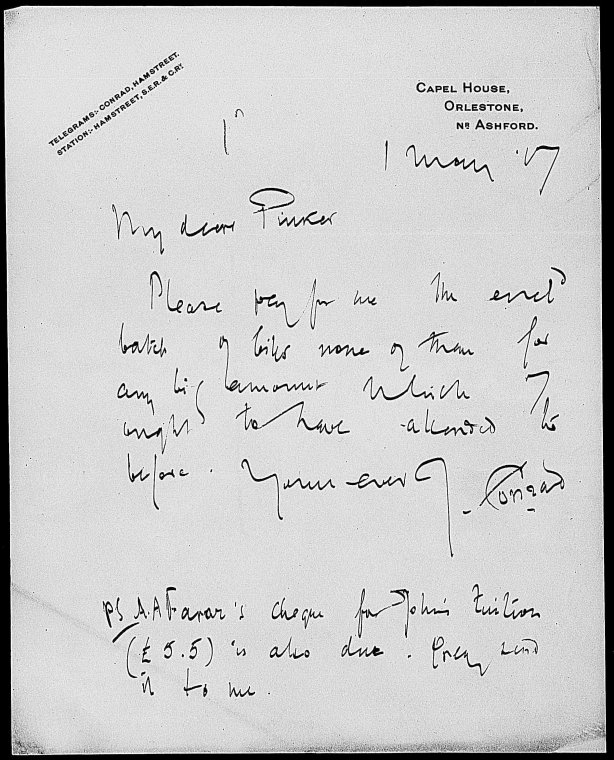 TELEGRAMS:- CONRAD, HAMSTREET.
STATION:- HAMSTREET, S.E.R. & C.RY.
CAPEL HOUSE,
ORLESTONE,
NR ASHFORD.
1 May '17
My dear Pinker
Please pay for me the encl^d
batch of bills none of them for
any big amount which I
ought to have attended to
before. Yours ever J. Conrad
PS A.A Farrar's cheque for John's Tuition
(£ 5.5) is also due. Pray send
it to me.